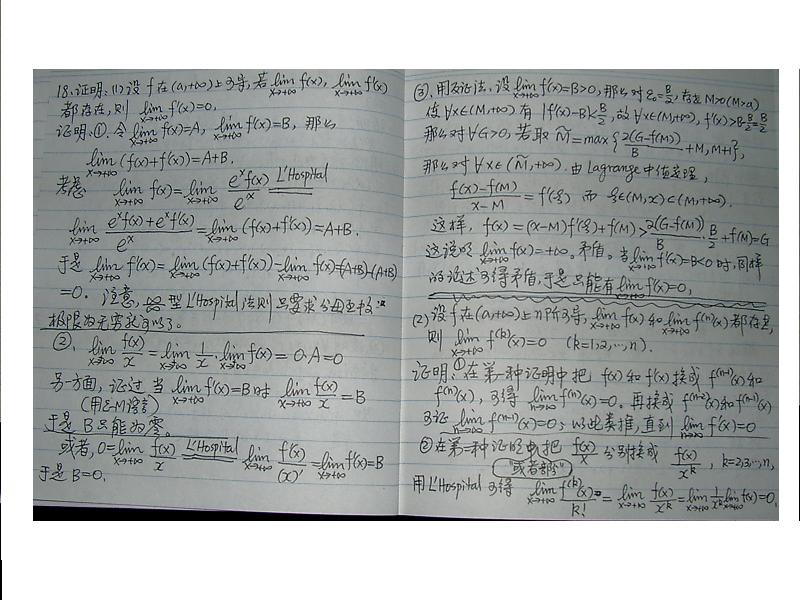 18.证明:(1)设 f 在(a,+∞)上可导,若 lim_{x→+∞} f(x), lim_{x→+∞} f'(x)
都存在,则 lim_{x→+∞} f'(x)=0.
证明:①.令 lim_{x→+∞} f(x)=A, lim_{x→+∞} f'(x)=B, 那么
lim_{x→+∞} (f(x)+f'(x))=A+B.
考虑 lim_{x→+∞} f(x)=lim_{x→+∞} e^x f(x)/e^x L'Hospital
lim_{x→+∞} (e^x f(x)+e^x f'(x))/e^x = lim_{x→+∞} (f(x)+f'(x))=A+B.
于是 lim_{x→+∞} f'(x)=lim_{x→+∞} (f(x)+f'(x))-lim_{x→+∞} f(x)=(A+B)-(A+B)
=0. 注意, 型L'Hospital法则只要求分母的
极限为无穷就可以了。
②. lim_{x→+∞} f(x)/x = lim_{x→+∞} 1/x · lim_{x→+∞} f(x) = 0·A=0
另一方面, 证过 当 lim_{x→+∞} f'(x)=B时 lim_{x→+∞} f(x)/x = B
(用ε-M语言)
于是 B只能为零。
或者, 0=lim_{x→+∞} f(x)/x L'Hospital lim_{x→+∞} f'(x)/(x)' = lim_{x→+∞} f'(x)=B
于是 B=0.
③.用反证法,设 lim_{x→+∞} f'(x)=B>0,那么对 ε₀=B/2,存在 M>0(M>a)
使 ∀x∈(M,+∞) 有 |f'(x)-B|<B/2, 故 ∀x∈(M,+∞), f'(x)>B-B/2=B/2
那么对 ∀G>0, 若取 M̃=max{2(G-f(M))/B+M, M+1},
那么对 ∀x∈(M̃,+∞). 由 Lagrange 中值定理,
(f(x)-f(M))/(x-M) = f'(ξ) 而 ξ∈(M,x)⊂(M,+∞).
这样, f(x)=(x-M)f'(ξ)+f(M)>2(G-f(M))/B·B/2+f(M)=G
这说明 lim_{x→+∞} f(x)=+∞。矛盾。当 lim_{x→+∞} f'(x)=B<0时,同样
的论述可得矛盾,于是只能有 lim_{x→+∞} f'(x)=0.
(2)设 f 在(a,+∞)上n阶可导, lim_{x→+∞} f(x) 和 lim_{x→+∞} f^(n)(x) 都存在,
则 lim_{x→+∞} f^(k)(x)=0 (k=1,2,…,n).
证明:①在第一种证明中把 f(x)和f'(x)换成 f^(n-1)(x)和
f^(n)(x), 可得 lim_{n→∞} f^(n)(x)=0. 再换成 f^(n-2)(x)和f^(n-1)(x)
可证 lim_{n→∞} f^(n-1)(x)=0; 以此类推, 直到 lim_{n→∞} f'(x)=0
②在第一种证明中把 f(x)/x 分别换成 f(x)/x^k, k=2,3,…,n,
"或者部分"
用L'Hospital 可得 lim_{x→+∞} f^(k)(x)/k! = lim_{x→+∞} f(x)/x^k = lim_{x→+∞} 1/x^k lim_{x→+∞} f(x)=0.